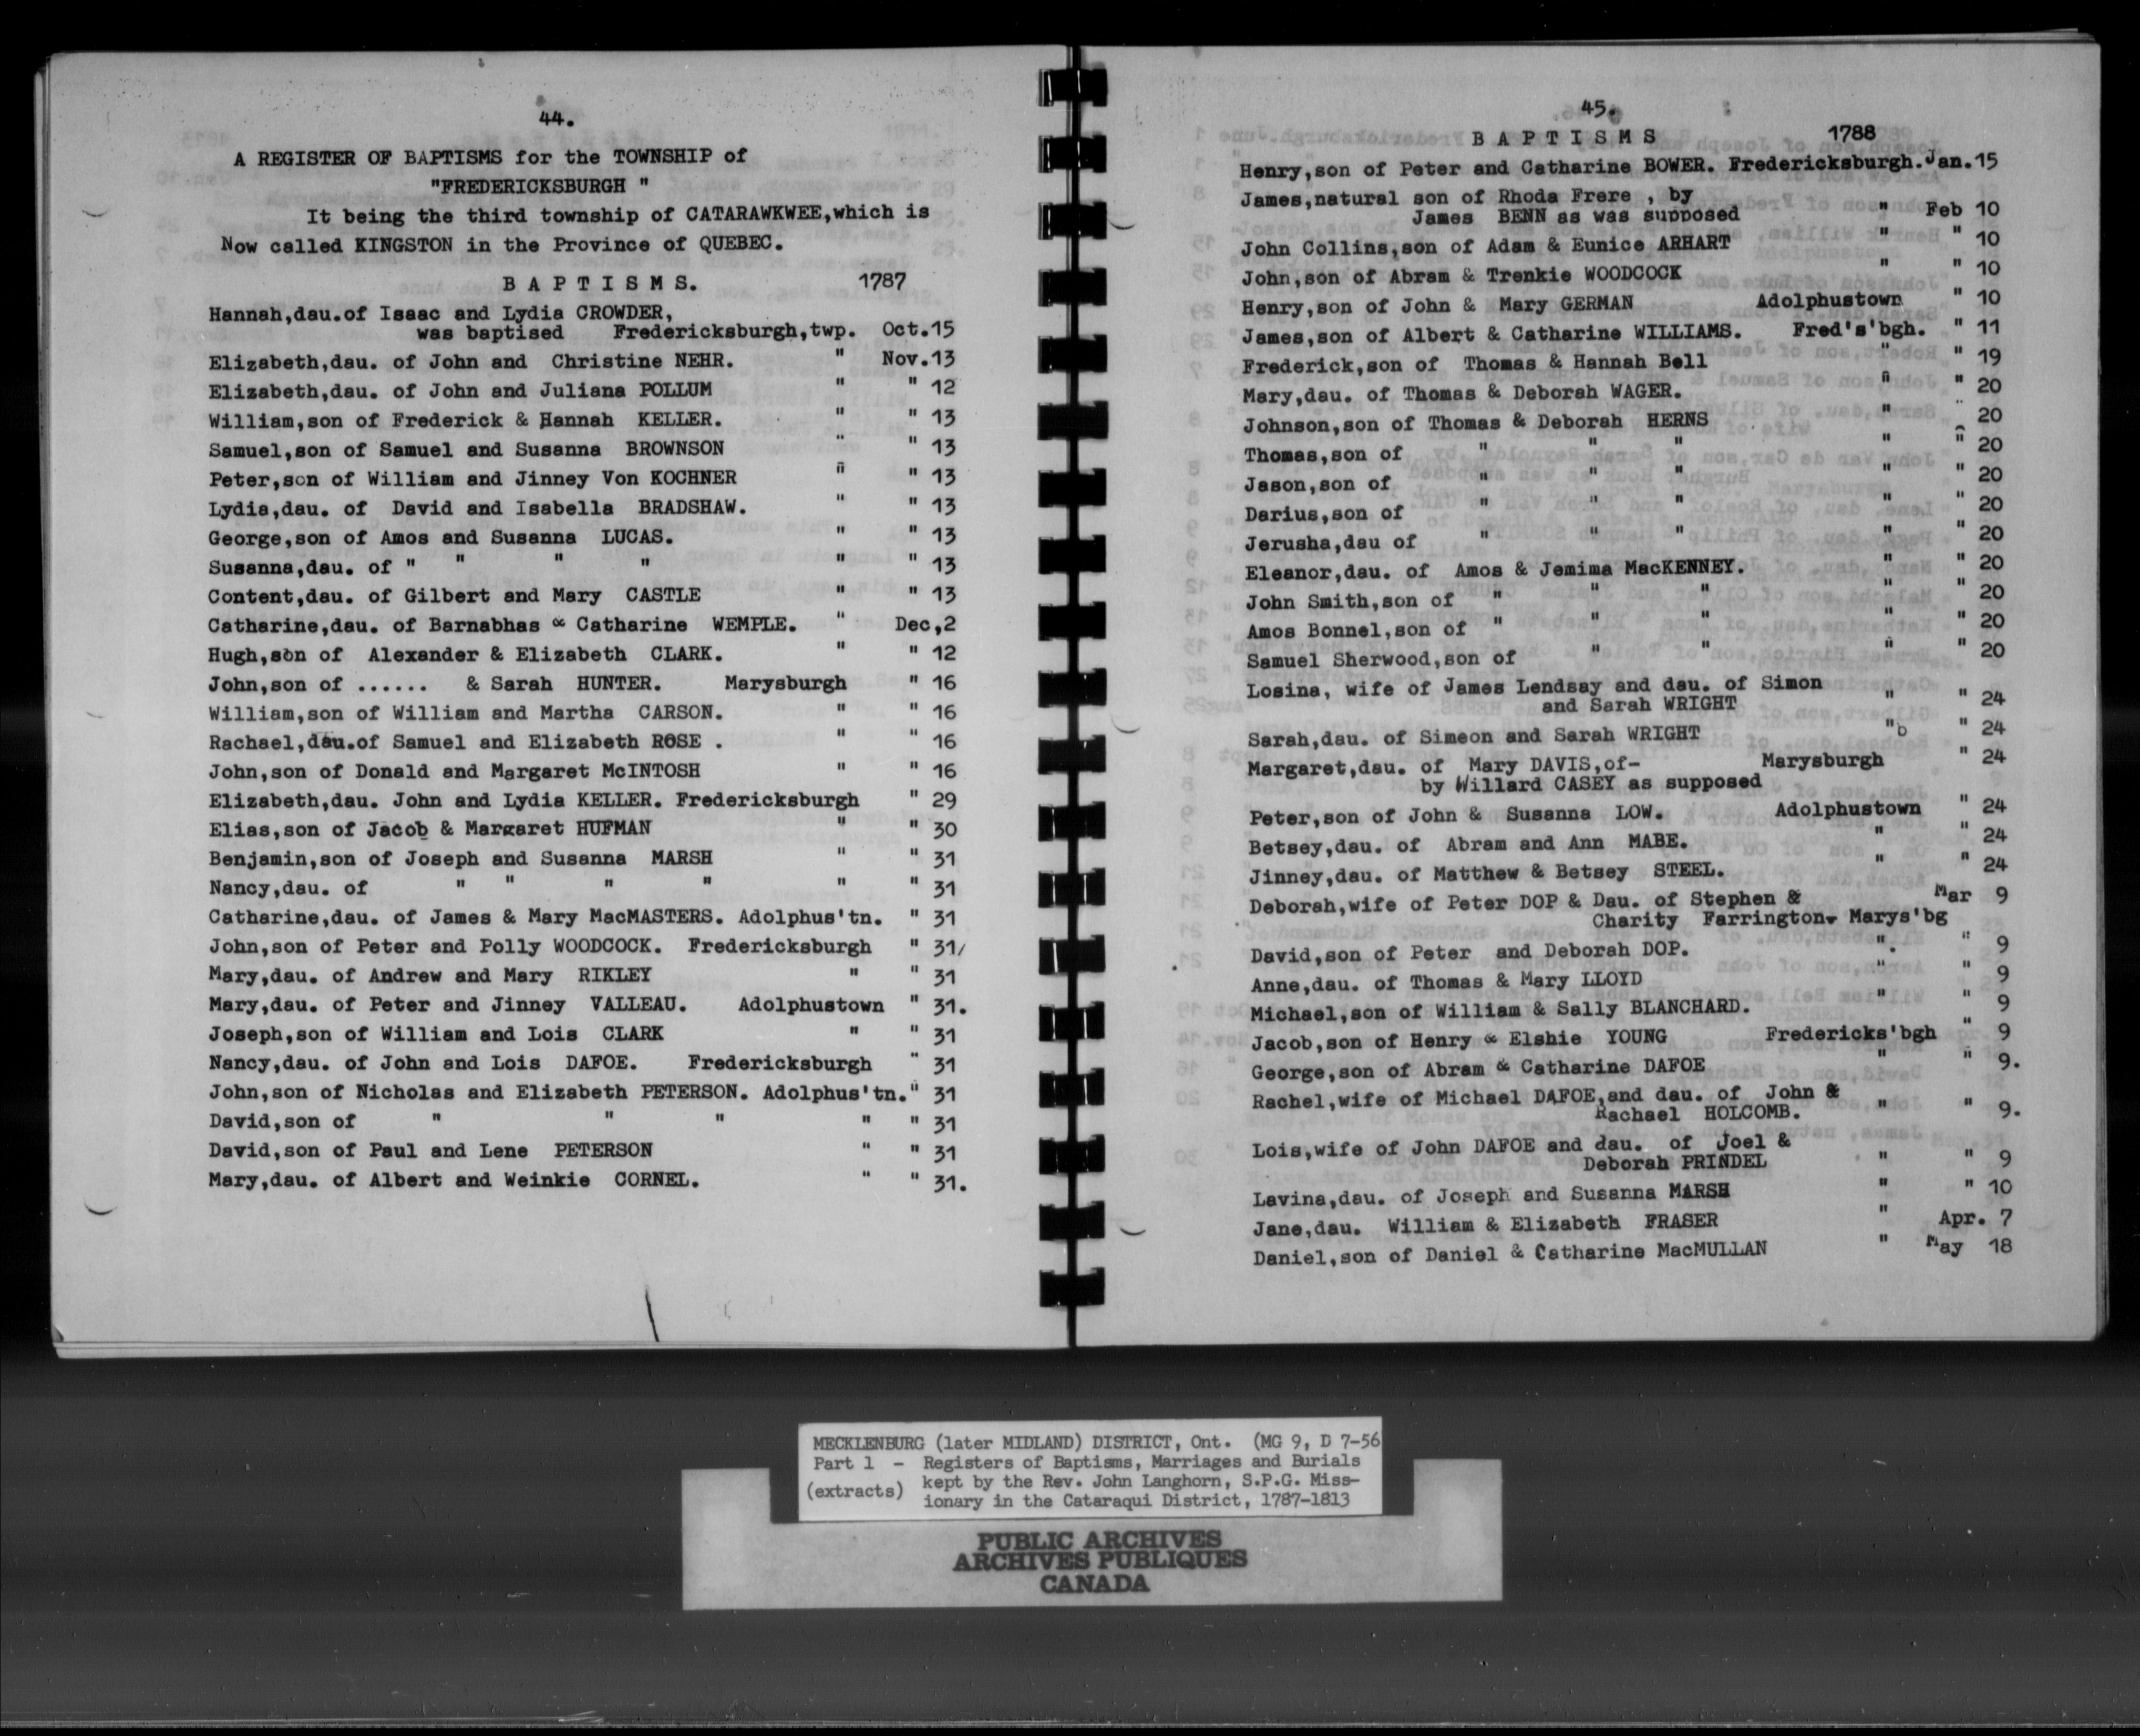 44.
A REGISTER OF BAPTISMS for the TOWNSHIP of
"FREDERICKSBURGH "
It being the third township of CATARAWKWEE,which is
Now called KINGSTON in the Province of QUEBEC.
B A P T I S M S. 1787
Hannah,dau.of Isaac and Lydia CROWDER,
was baptised Fredericksburgh,twp. Oct.15
Elizabeth,dau. of John and Christine NEHR. " Nov.13
Elizabeth,dau. of John and Juliana POLLUM " " 12
William,son of Frederick & Hannah KELLER. " " 13
Samuel,son of Samuel and Susanna BROWNSON " " 13
Peter,son of William and Jinney Von KOCHNER " " 13
Lydia,dau. of David and Isabella BRADSHAW. " " 13
George,son of Amos and Susanna LUCAS. " " 13
Susanna,dau. of " " " " " " 13
Content,dau. of Gilbert and Mary CASTLE " " 13
Catharine,dau. of Barnabhas & Catharine WEMPLE. " Dec,2
Hugh,son of Alexander & Elizabeth CLARK. " " 12
John,son of ...... & Sarah HUNTER. Marysburgh " 16
William,son of William and Martha CARSON. " " 16
Rachael,dau.of Samuel and Elizabeth ROSE . " " 16
John,son of Donald and Margaret McINTOSH " " 16
Elizabeth,dau. John and Lydia KELLER. Fredericksburgh " 29
Elias,son of Jacob & Margaret HUFMAN " " 30
Benjamin,son of Joseph and Susanna MARSH " " 31
Nancy,dau. of " " " " " " 31
Catharine,dau. of James & Mary MacMASTERS. Adolphus'tn. " 31
John,son of Peter and Polly WOODCOCK. Fredericksburgh " 31/
Mary,dau. of Andrew and Mary RIKLEY " " 31
Mary,dau. of Peter and Jinney VALLEAU. Adolphustown " 31.
Joseph,son of William and Lois CLARK " " 31
Nancy,dau. of John and Lois DAFOE. Fredericksburgh " 31
John,son of Nicholas and Elizabeth PETERSON. Adolphus'tn." 31
David,son of " " " " " 31
David,son of Paul and Lene PETERSON " " 31
Mary,dau. of Albert and Weinkie CORNEL. " " 31.
45.
B A P T I S M S 1788
Henry,son of Peter and Catharine BOWER. Fredericksburgh.Jan.15
James,natural son of Rhoda Frere , by
James BENN as was supposed " Feb 10
John Collins,son of Adam & Eunice ARHART " " 10
John,son of Abram & Trenkie WOODCOCK " " 10
Henry,son of John & Mary GERMAN Adolphustown " 10
James,son of Albert & Catharine WILLIAMS. Fred's'bgh. " 11
Frederick,son of Thomas & Hannah Bell " " 19
Mary,dau. of Thomas & Deborah WAGER. " " 20
Johnson,son of Thomas & Deborah HERNS " " 20
Thomas,son of " " " " " 20
Jason,son of " " " " " 20
Darius,son of " " " " " 20
Jerusha,dau of " " " " " 20
Eleanor,dau. of Amos & Jemima MacKENNEY. " " 20
John Smith,son of " " " " " 20
Amos Bonnel,son of " " " " " 20
Samuel Sherwood,son of " " " " 20
Losina, wife of James Lendsay and dau. of Simon
and Sarah WRIGHT " " 24
Sarah,dau. of Simeon and Sarah WRIGHT "b " 24
Margaret,dau. of Mary DAVIS,of- Marysburgh " 24
by Willard CASEY as supposed
Peter,son of John & Susanna LOW. Adolphustown " 24
Betsey,dau. of Abram and Ann MABE. " " 24
Jinney,dau. of Matthew & Betsey STEEL. " " 24
Deborah,wife of Peter DOP & Dau. of Stephen & Mar 9
Charity Farrington. Marys'bg
David,son of Peter and Deborah DOP. ". " 9
Anne,dau. of Thomas & Mary LLOYD " " 9
Michael,son of William & Sally BLANCHARD. " " 9
Jacob,son of Henry & Elshie YOUNG Fredericks'bgh " 9
George,son of Abram & Catharine DAFOE " " 9.
Rachel,wife of Michael DAFOE,and dau. of John &
Rachael HOLCOMB. " " 9.
Lois,wife of John DAFOE and dau. of Joel &
Deborah PRINDEL " " 9
Lavina,dau. of Joseph and Susanna MARSH " " 10
Jane,dau. William & Elizabeth FRASER " Apr. 7
Daniel,son of Daniel & Catharine MacMULLAN " May 18
MECKLENBURG (later MIDLAND) DISTRICT, Ont. (MG 9, D 7-56
Part 1 - Registers of Baptisms, Marriages and Burials
(extracts) kept by the Rev. John Langhorn, S.P.G. Miss-
ionary in the Cataraqui District, 1787-1813
PUBLIC ARCHIVES
ARCHIVES PUBLIQUES
CANADA